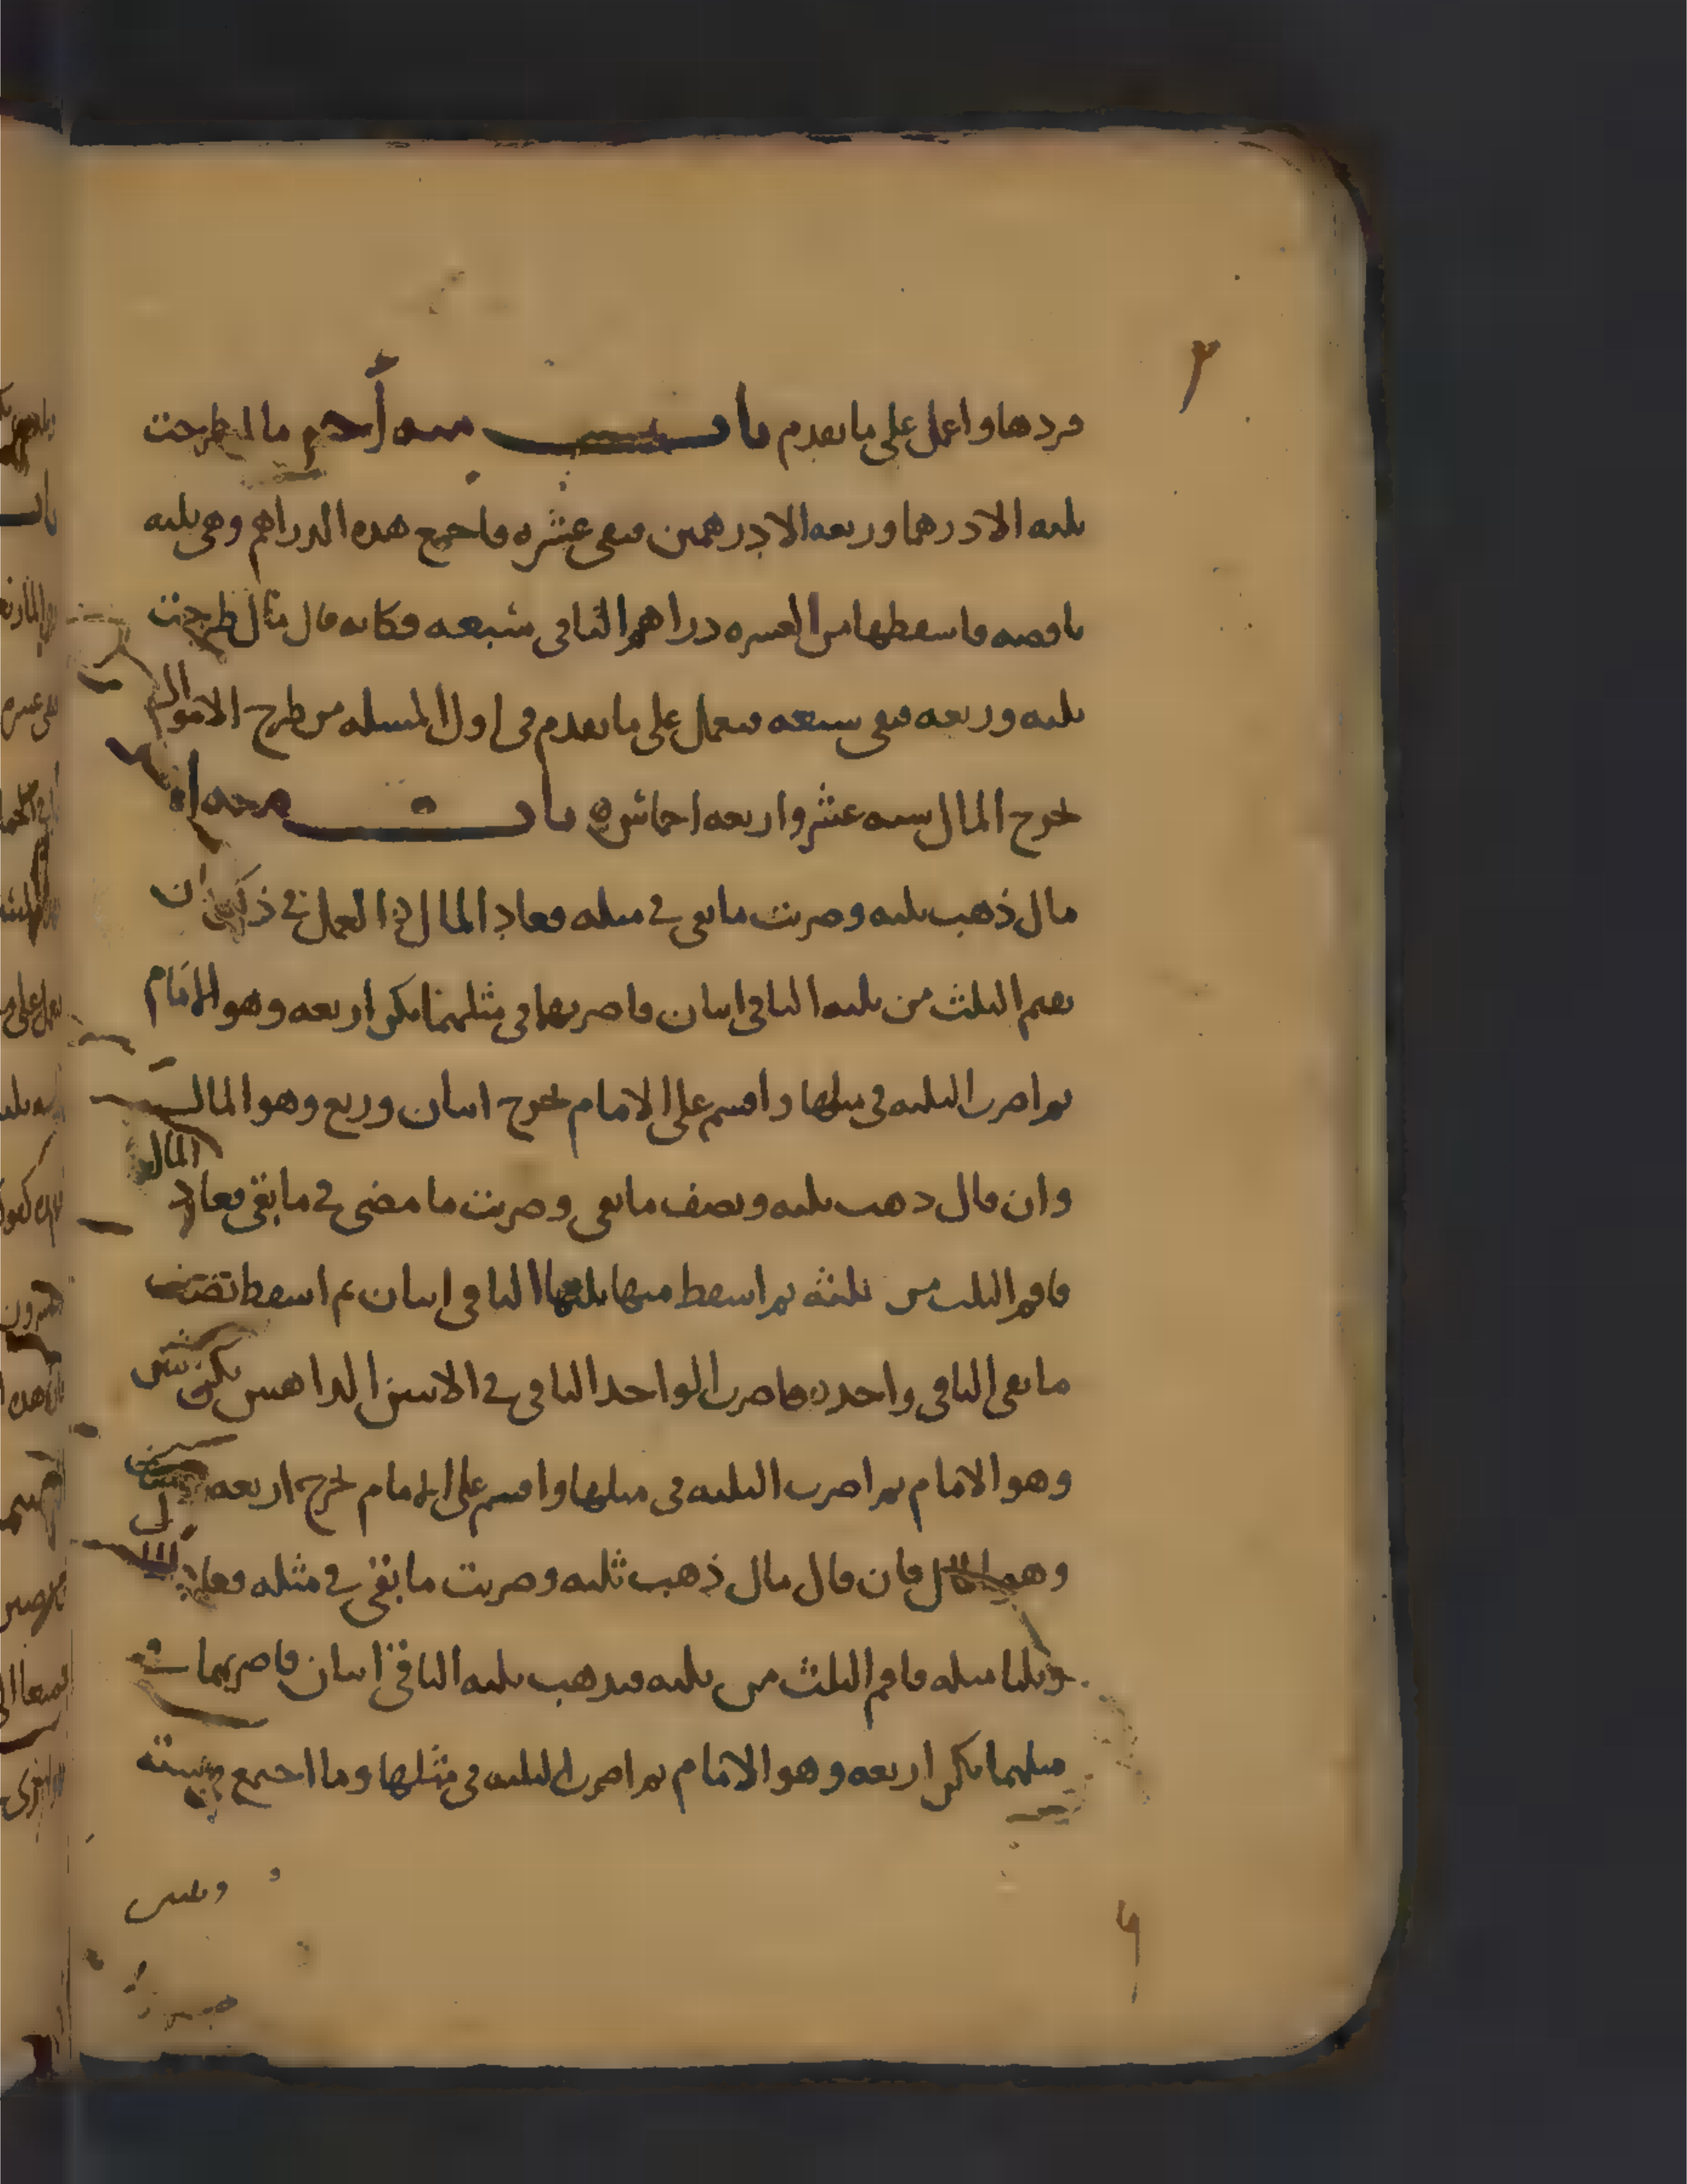 ٢
فردها واعمل على ما تقدم باب منه أخر مال طرحت
ثلثه الا درهما وربعه الا درهمين فبقى عشره فاجمع هذه الدراهم وهى ثلثه
ناقصه فاسقطها من العشره دراهم الباقى سبعه فكانه قال مال طرحت
ثلثه وربعه فبقى سبعه فتعمل على ما تقدم فى اول المسله من طرح الاموال
يخرج المال سته عشر واربعه اخماس باب منه
مال ذهب ثلثه وضربت ما بقى فى مثله فعاد المال العمل فى ذلك ان
تقيم الثلث من ثلثه الباقى اثنان فاضربهما فى مثلهما يكن اربعه وهو الامام
ثم اضرب الثلثه فى مثلها واقسم على الامام يخرج اثنان وربع وهو المال
وان قال ذهب ثلثه ونصف ما بقى وضربت ما مضى فى ما بقى فعاد المال
فاقم الثلث من ثلثه ثم اسقط منها ثلثها الباقى اثنان ثم اسقط نصف
ما بقى الباقى واحد فاضرب الواحد الباقى فى الاثنين الذاهبين يكن اثنين
وهو الامام ثم اضرب الثلثه فى مثلها واقسم على الامام يخرج اربعه ونصف
وهو المال فان قال مال ذهب ثلثه وضربت ما بقى فى مثله فعاد المال
وثلثا مثله فاقم الثلث من ثلثه فيذهب ثلثه الباقى اثنان فاضربهما فى
مثلهما يكن اربعه وهو الامام ثم اضرب الثلثه فى مثلها وما اجتمع فى سته